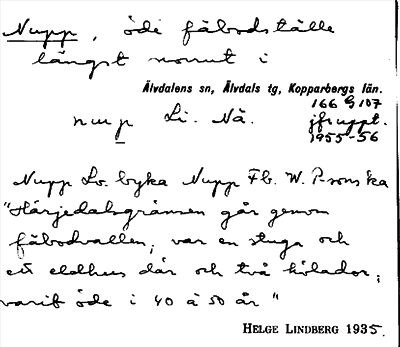 Nupp, öde fäbodställe
längst norrut i
Älvdalens sn, Älvdals tg, Kopparbergs län.
166 G 107
nup Li. Nä. jfr uppt.
1955-56
Nupp Lv. byka Nupp Fb. W. P-sons ka
"Härjedalsgränsen går genom
fäbodvallen; var en stuga och
ett eldhus där och två hölador;
varit öde i 40 à 50 år"
HELGE LINDBERG 1935.